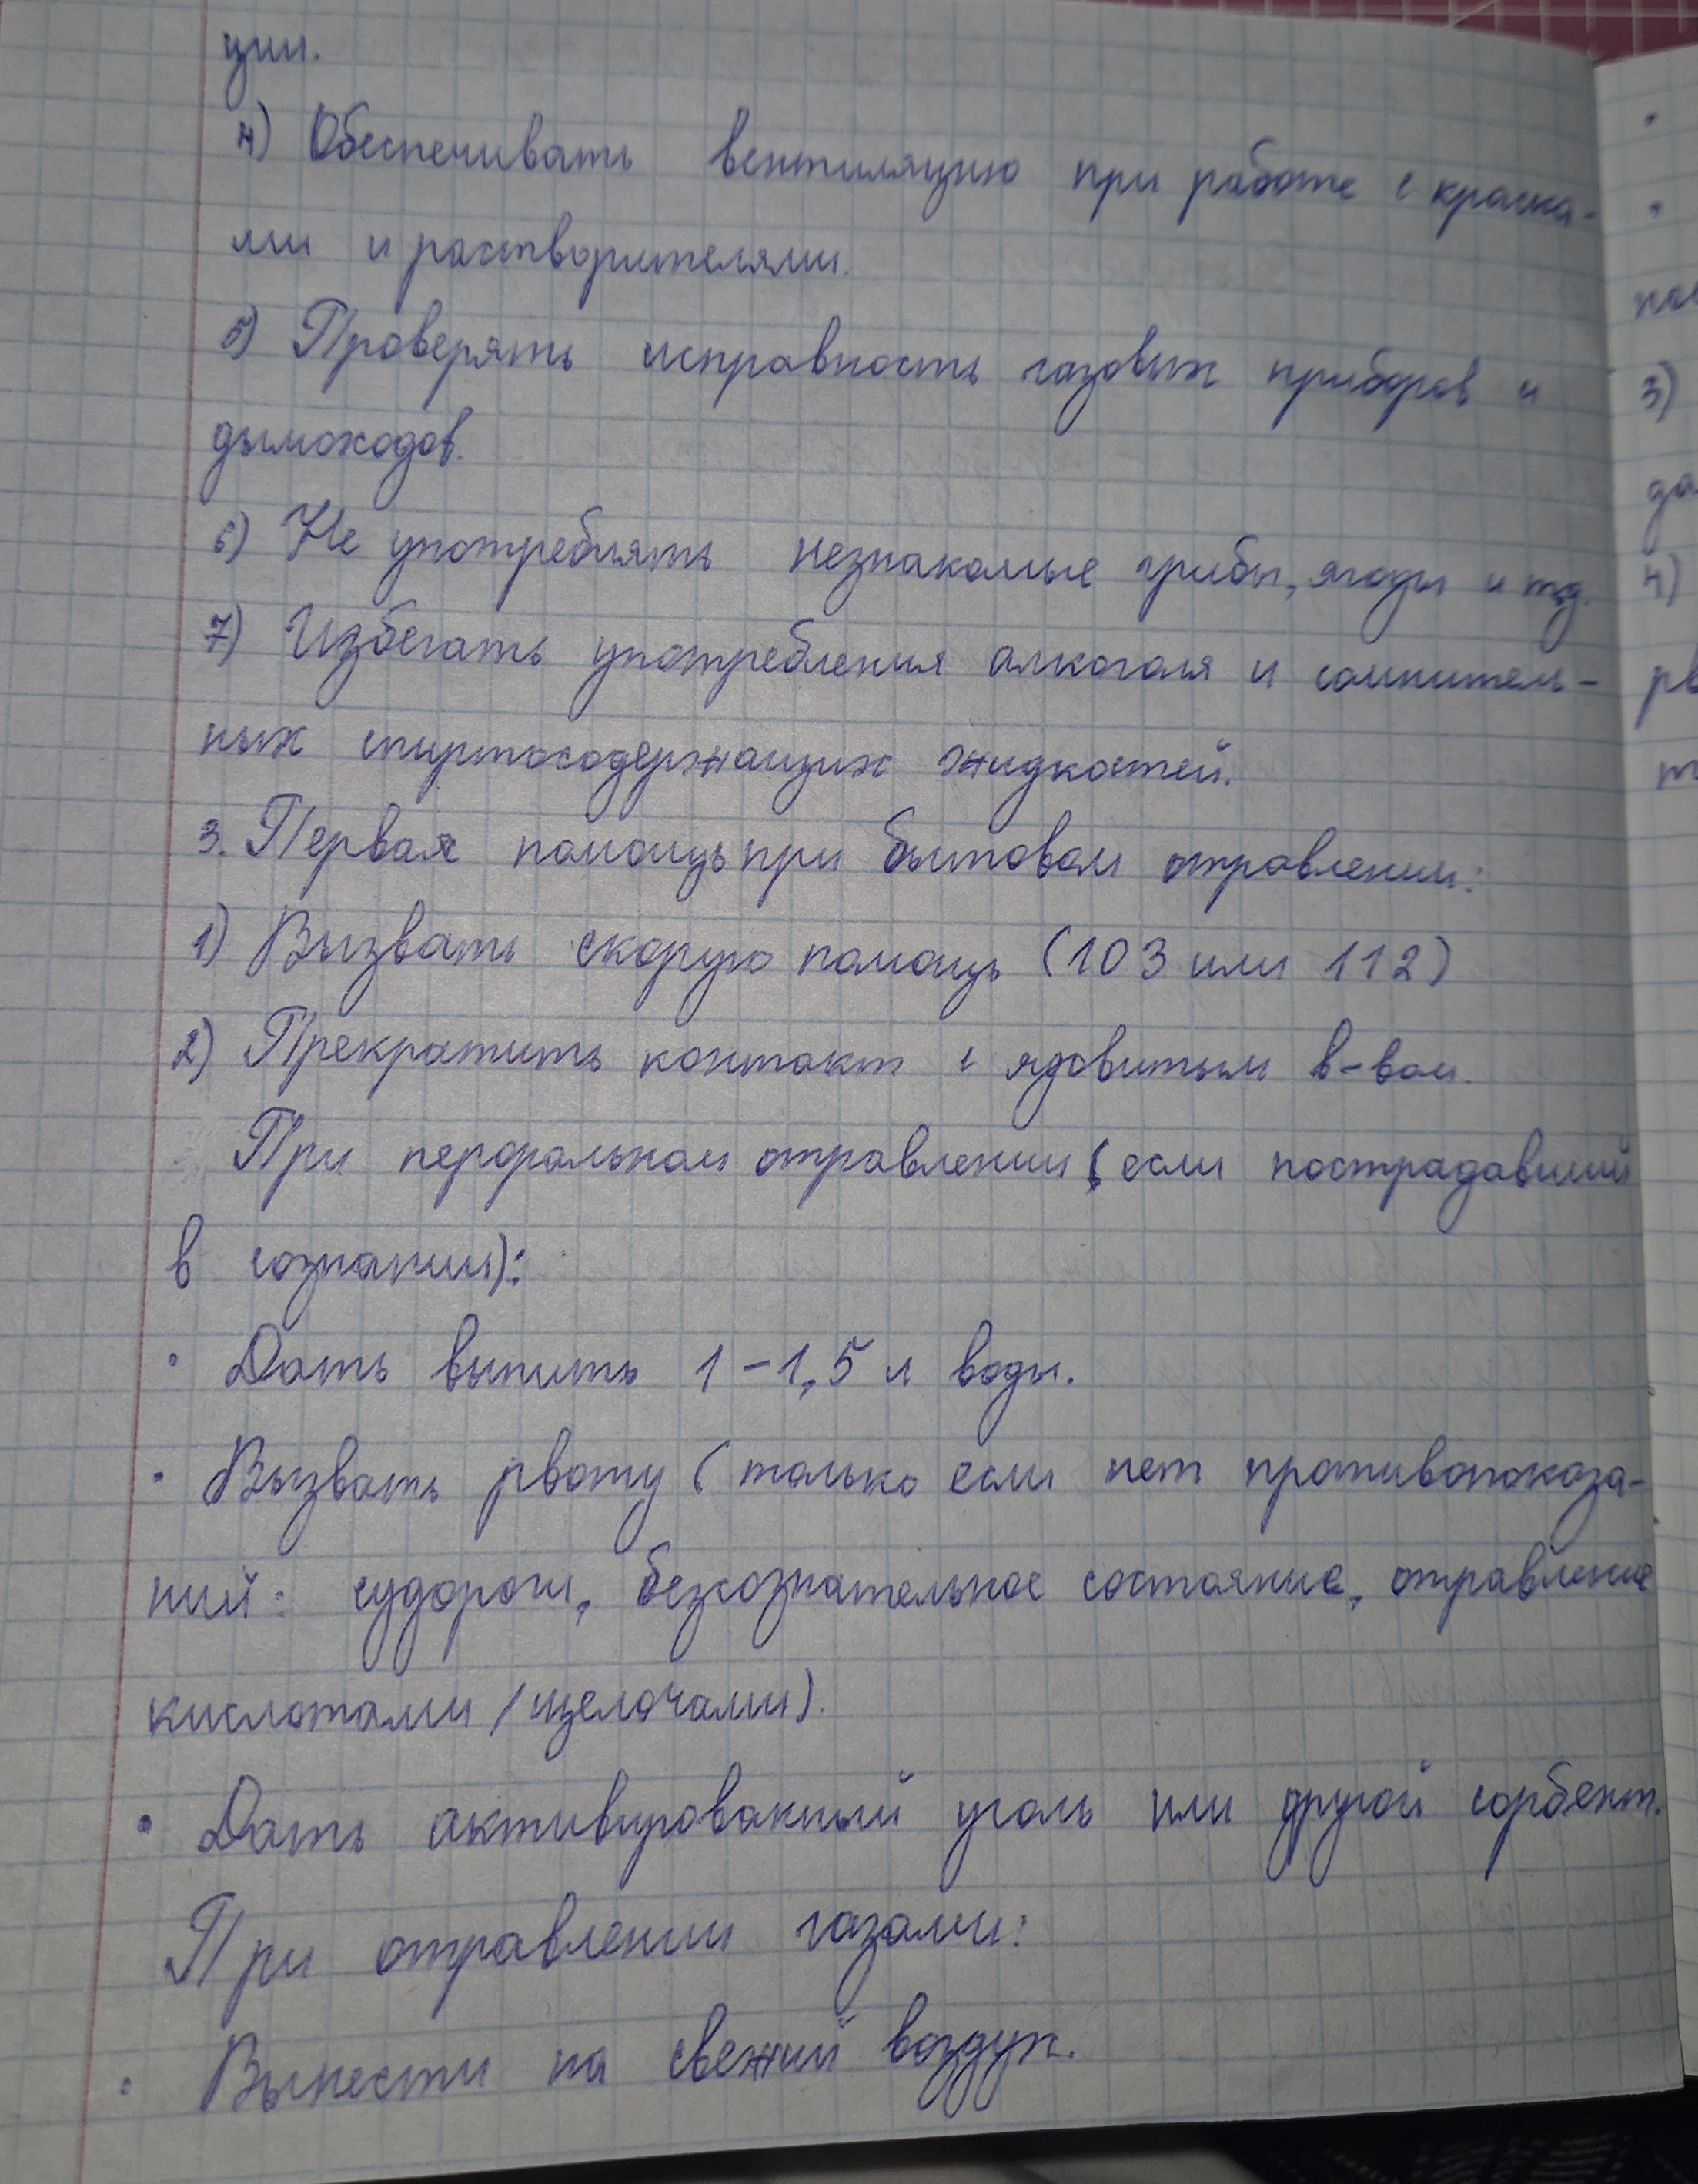 ции.
4) Обеспечивать вентиляцию при работе с краска-
ми и растворителями.
5) Проверять исправность газовых приборов и
дымоходов.
6) Не употреблять незнакомые грибы, ягоды и тд.
7) Избегать употребления алкоголя и сомнитель-
ных спиртосодержащих жидкостей.
3. Первая помощь при бытовом отравлении:
1) Вызвать скорую помощь (103 или 112)
2) Прекратить контакт с ядовитым в-вом.
При пероральном отравлении (если пострадавший
в сознании):
· Дать выпить 1-1,5 л воды.
· Вызвать рвоту (только если нет противопоказа-
ний: судороги, безсознательное состояние, отравление
кислотами/щелочами).
· Дать активированный уголь или другой сорбент.
При отравлении газами:
· Вынести на свежий воздух.
3)
4)